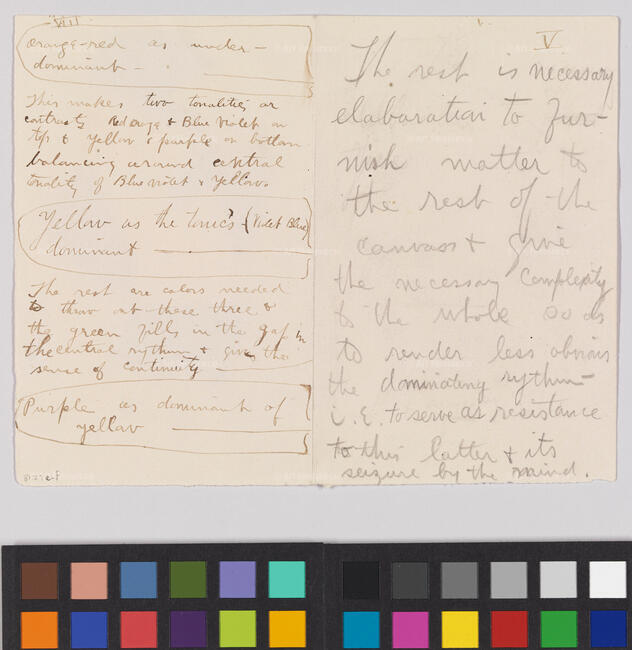 VIII
orange-red as under-
dominant
This makes two tonalities or
contrasts Red orange & Blue Violet on
top & yellow & purple on bottom
balancing around central
tonality of Blue violet & Yellows
Yellow as the tonic's (Violet Blue)
dominant
The rest are colors needed
to throw out these three &
the green fills in the gap in
the central rythum & gives the
sense of continuity
Purple as dominant of
yellow
V
The rest is necessary
elaboration to fur-
nish matter to
the rest of the
canvass & give
the necessary complexity
to the whole so as
to render less obvious
the dominating rythum-
i.e. to serve as resistance
to this latter & its
seizure by the mind.